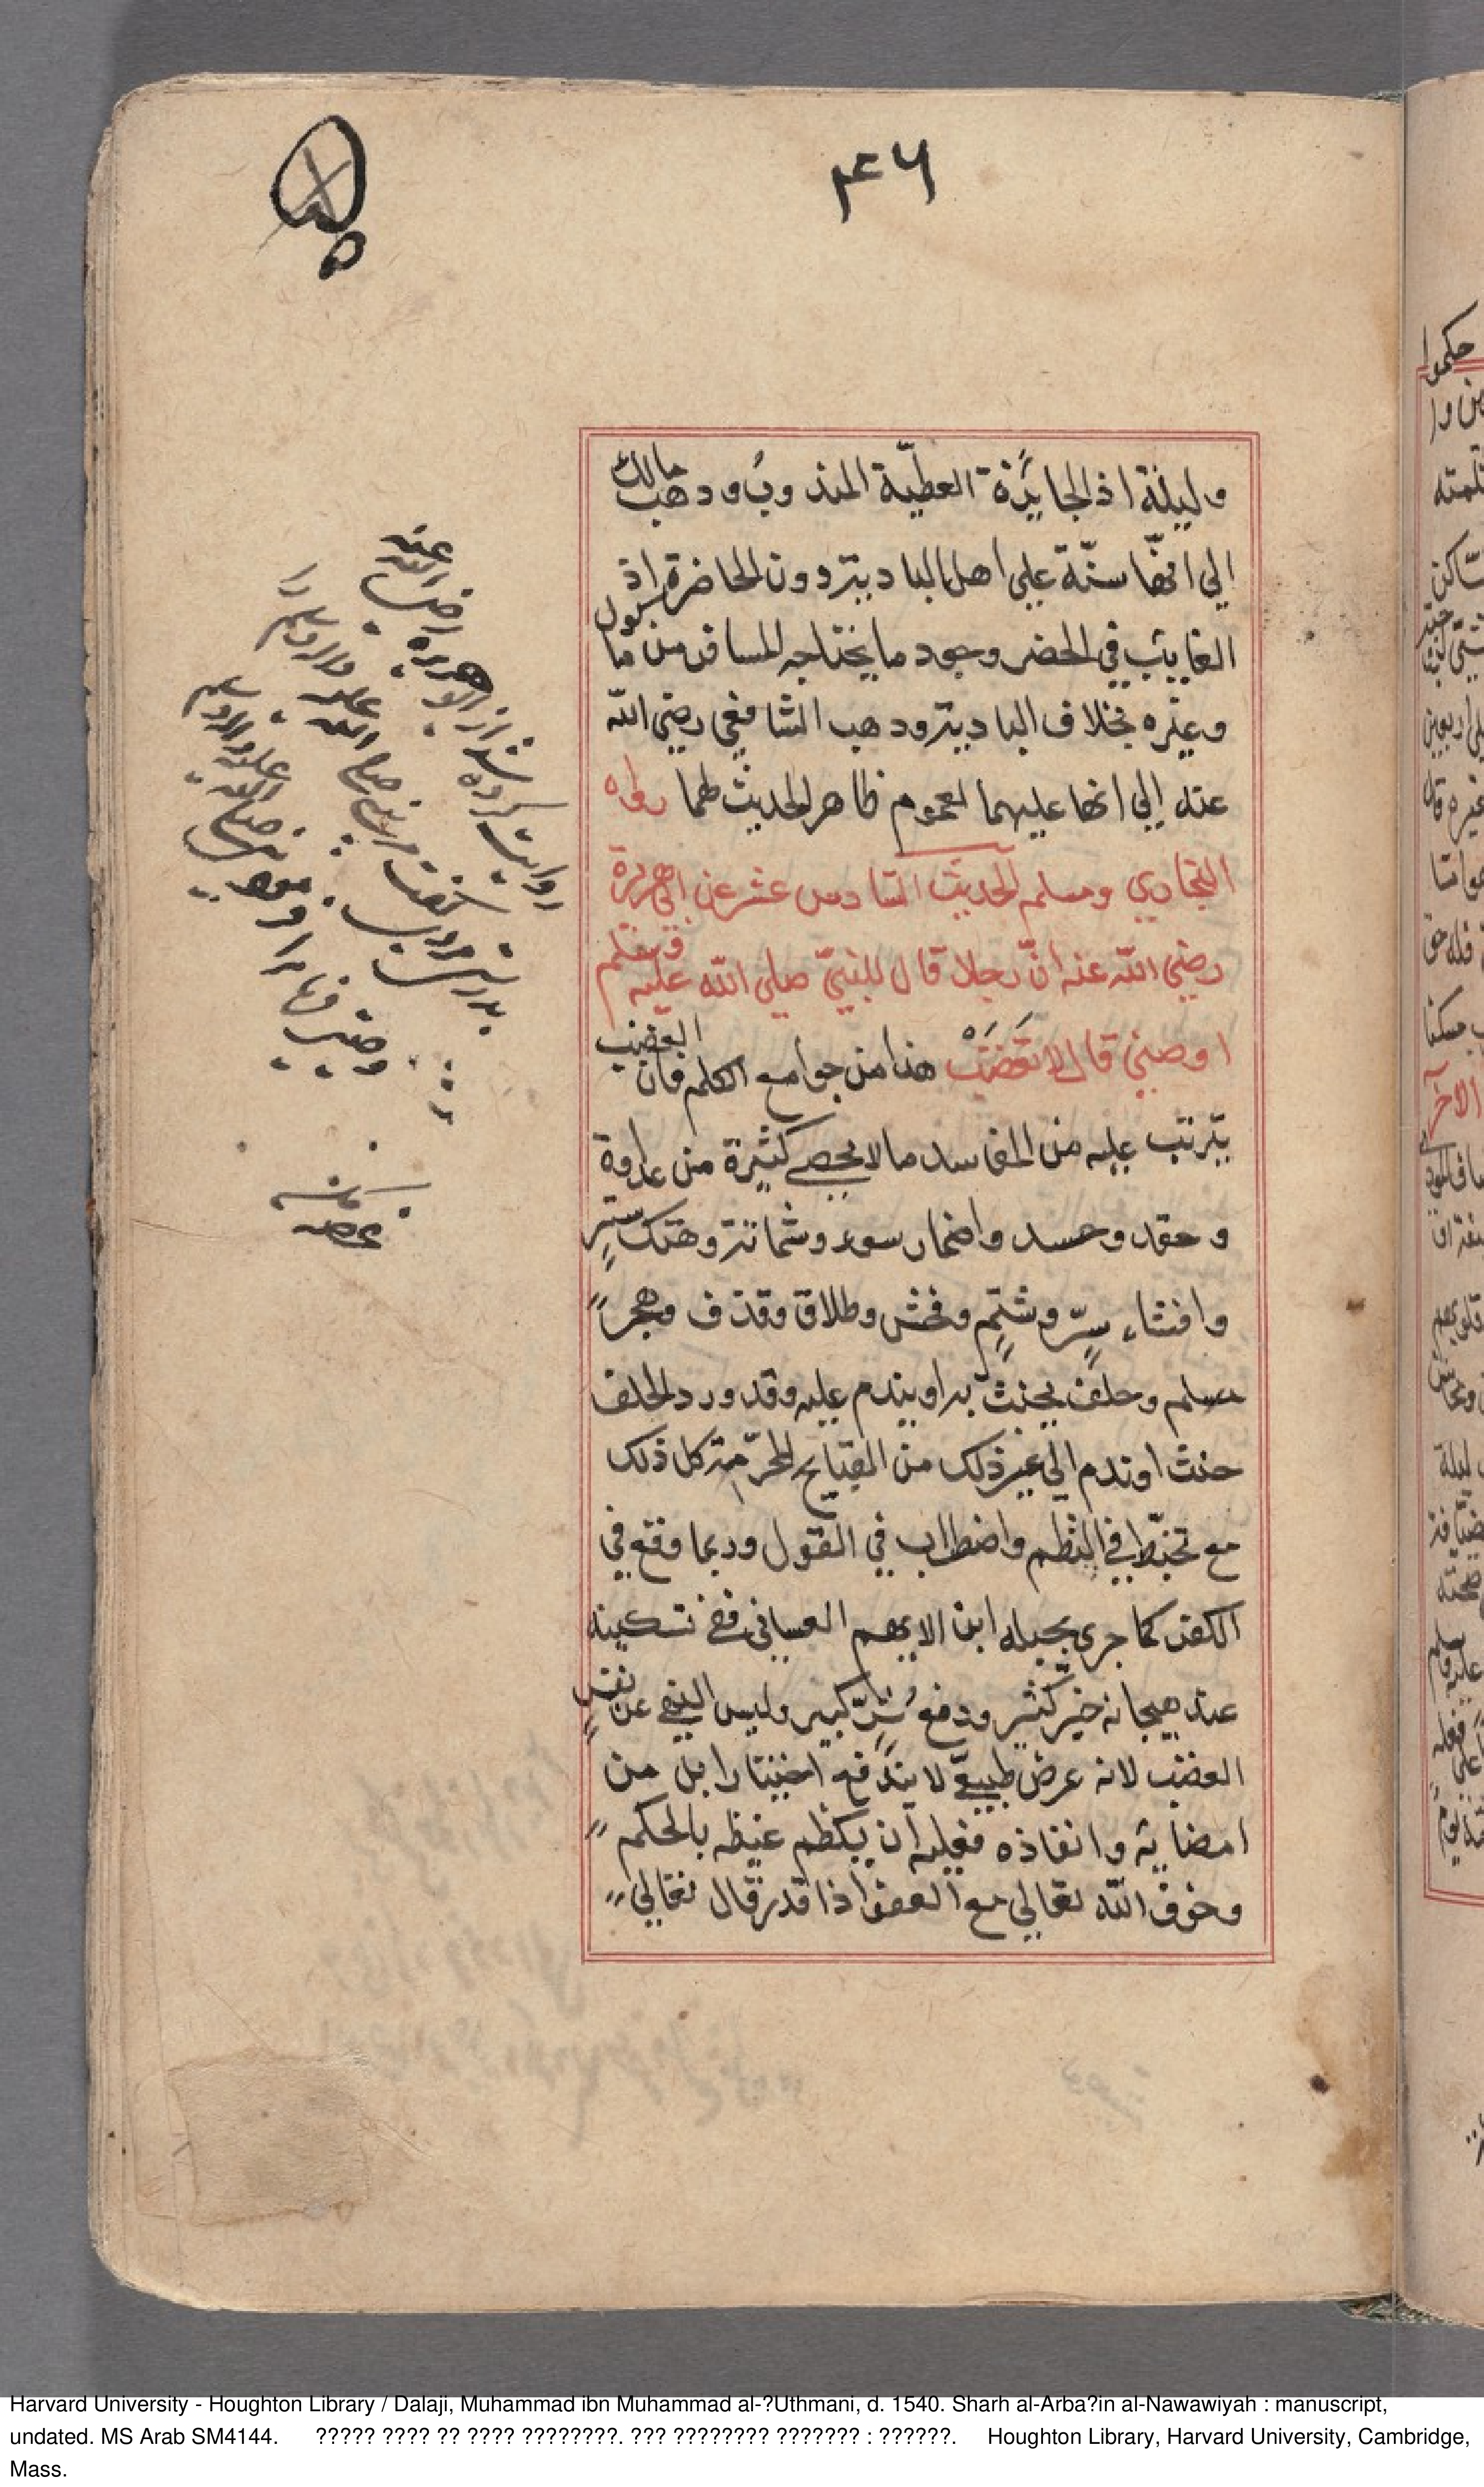 ۴۶
وليلة اذ الجايزة العطيّة المندوبُ وذهب مالك
الي انّها سنّة علي اهل البادية دون الحاضرة اذ
الغايب في الحضر وجود ما يحتاجه المسافر من ماكول
وغيره بخلاف البادية وذهب الشافعي رضي الله
عنه إلي انها عليهما لعموم ظاهر الحديث لهما رواه
البخاري ومسلم الحديث السادس عشر عن ابي هريرة
رضي الله عنه انّ رجلا قال للنبيّ صلي الله عليه وسلم
اوصني قال لا تغضب هذا من جوامع الكلم فان الغضب
يترتب عليه من المفاسد ما لا يحصي كثيرة من عداوة
و حقد وحسد واضمار سوء وشماتة وهتك سترٍ
وافشاء سرٍّ وشتمٍ وفحش وطلاق وقذف وهجر
مسلم وحلف يحنث به او يندم عليه وقد ورد الحلف
حنث او ندم الي غير ذلك من القبايح المحرّمة كل ذلك
مع تخبّط في النظم واضطراب في القول وربما وقع في
الكفر كما جري بجبله ابن الايهم الغساني ففي تسكينه
عند هيجانه خيرٌ كثير ودفع شرّ كبير وليس النهي عن نفسٍ
الغضب لانه عرض طبيعيّ لا يندفع اختيارا بل من
امضايه وانفاذه فعليه أن يكظم غيظه بالحكم
وخوف الله تعالي مع العفو اذا قدر قال تعالي
روايت كرده شد از ابو هريره رضي الله عنه
بدرستي مردي گفت مر نبي صلي الله عليه واله وسلم را
وصيت فرما مرا فرمود نبي صلي الله عليه واله وسلم
Harvard University - Houghton Library / Dalaji, Muhammad ibn Muhammad al-?Uthmani, d. 1540. Sharh al-Arba?in al-Nawawiyah : manuscript,
undated. MS Arab SM4144. ????? ???? ?? ???? ????????. ??? ???????? ??????? : ??????. Houghton Library, Harvard University, Cambridge,
Mass.